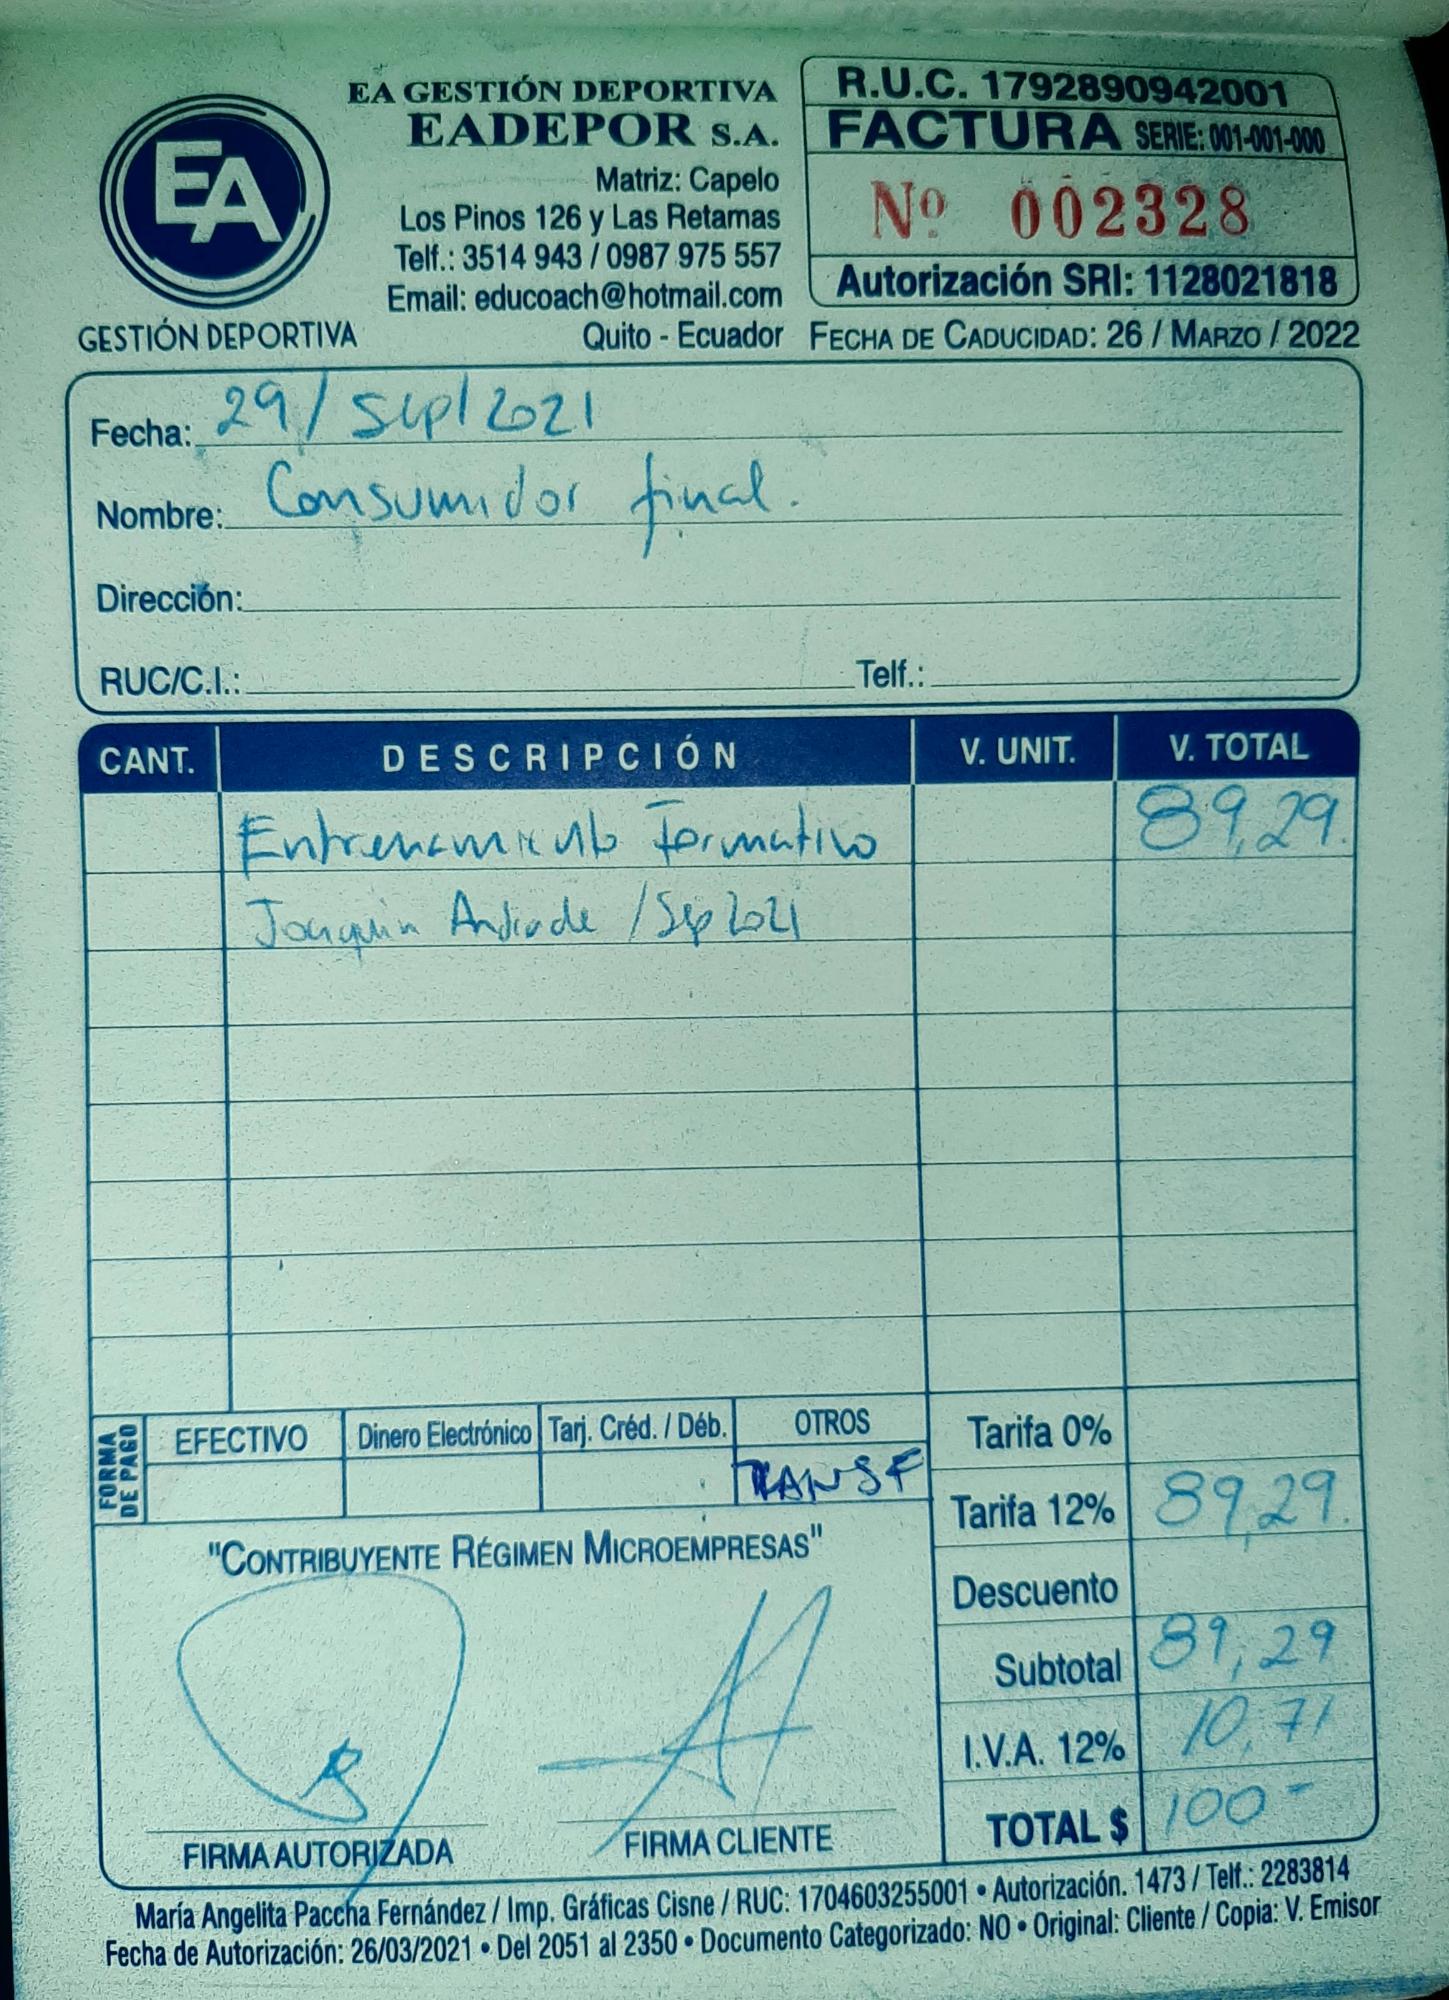 EA
GESTIÓN DEPORTIVA
EA GESTIÓN DEPORTIVA
EADEPOR S.A.
Matriz: Capelo
Los Pinos 126 y Las Retamas
Telf.: 3514 943 / 0987 975 557
Email: educoach@hotmail.com
Quito - Ecuador
R.U.C. 1792890942001
FACTURA SERIE: 001-001-000
Nº 002328
Autorización SRI: 1128021818
FECHA DE CADUCIDAD: 26 / MARZO / 2022
Fecha: 29/Sep/2021
Nombre: Consumidor final.
Dirección:
RUC/C.I.: Telf.:
CANT. DESCRIPCIÓN V. UNIT. V. TOTAL
Entrenamiento Formativo 89,29.
Joaquin Andrade /Sep 2021
FORMA DE PAGO
EFECTIVO Dinero Electrónico Tarj. Créd. / Déb. OTROS
TRANSF
Tarifa 0%
Tarifa 12% 89,29.
Descuento
Subtotal 89,29
I.V.A. 12% 10,71
TOTAL $ 100-
"CONTRIBUYENTE RÉGIMEN MICROEMPRESAS"
FIRMA AUTORIZADA FIRMA CLIENTE
María Angelita Paccha Fernández / Imp. Gráficas Cisne / RUC: 1704603255001 • Autorización. 1473 / Telf.: 2283814
Fecha de Autorización: 26/03/2021 • Del 2051 al 2350 • Documento Categorizado: NO • Original: Cliente / Copia: V. Emisor